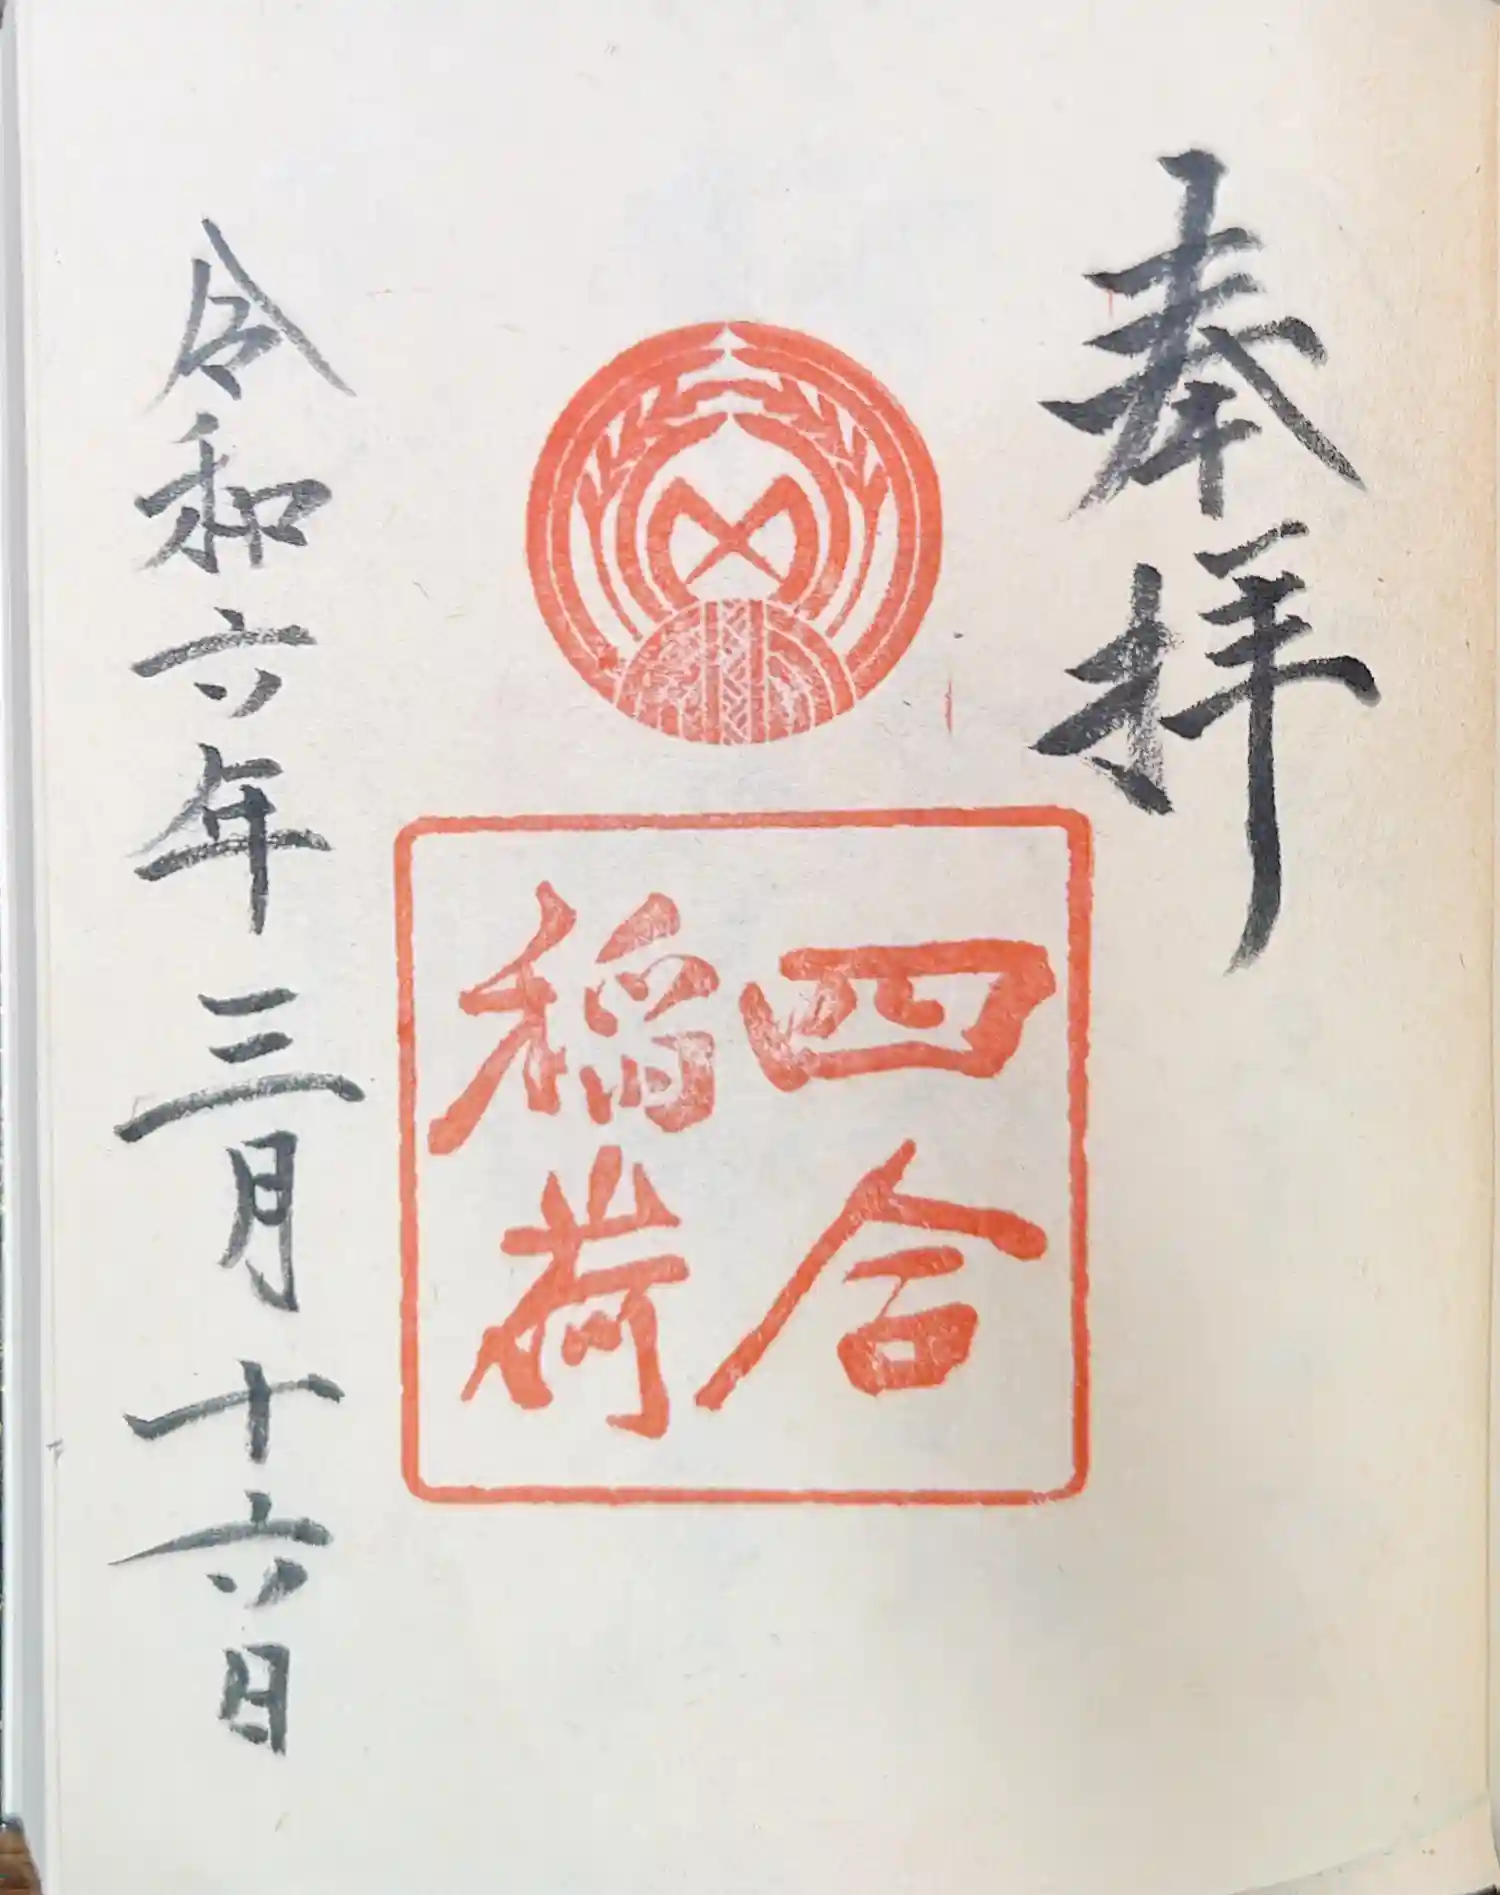 奉拝
四合
稲荷
令和六年三月十六日